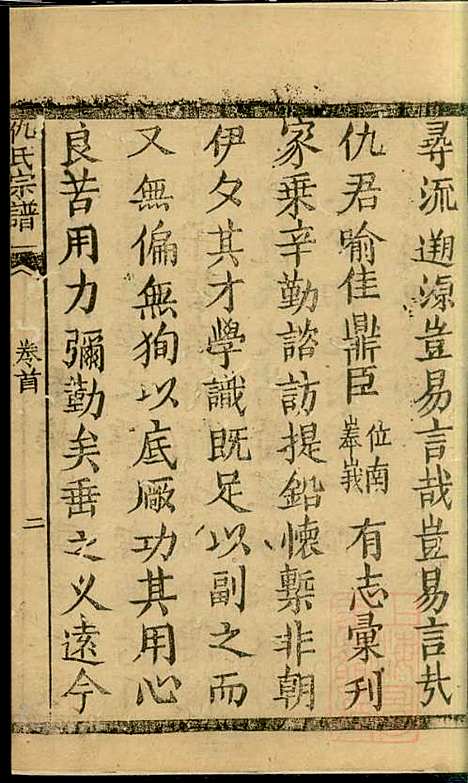 尋流遡源豈易言哉豈易言哉
仇君喻佳鼎臣位南奉峩有志彙刊
家乗辛勤諮訪提鉛懐槧非朝
伊夕其才學識既足以副之而
又無偏無狥以底厥功其用心
良苦用力彌勤矣垂之乂遠今
仇氏宗譜
卷首
二